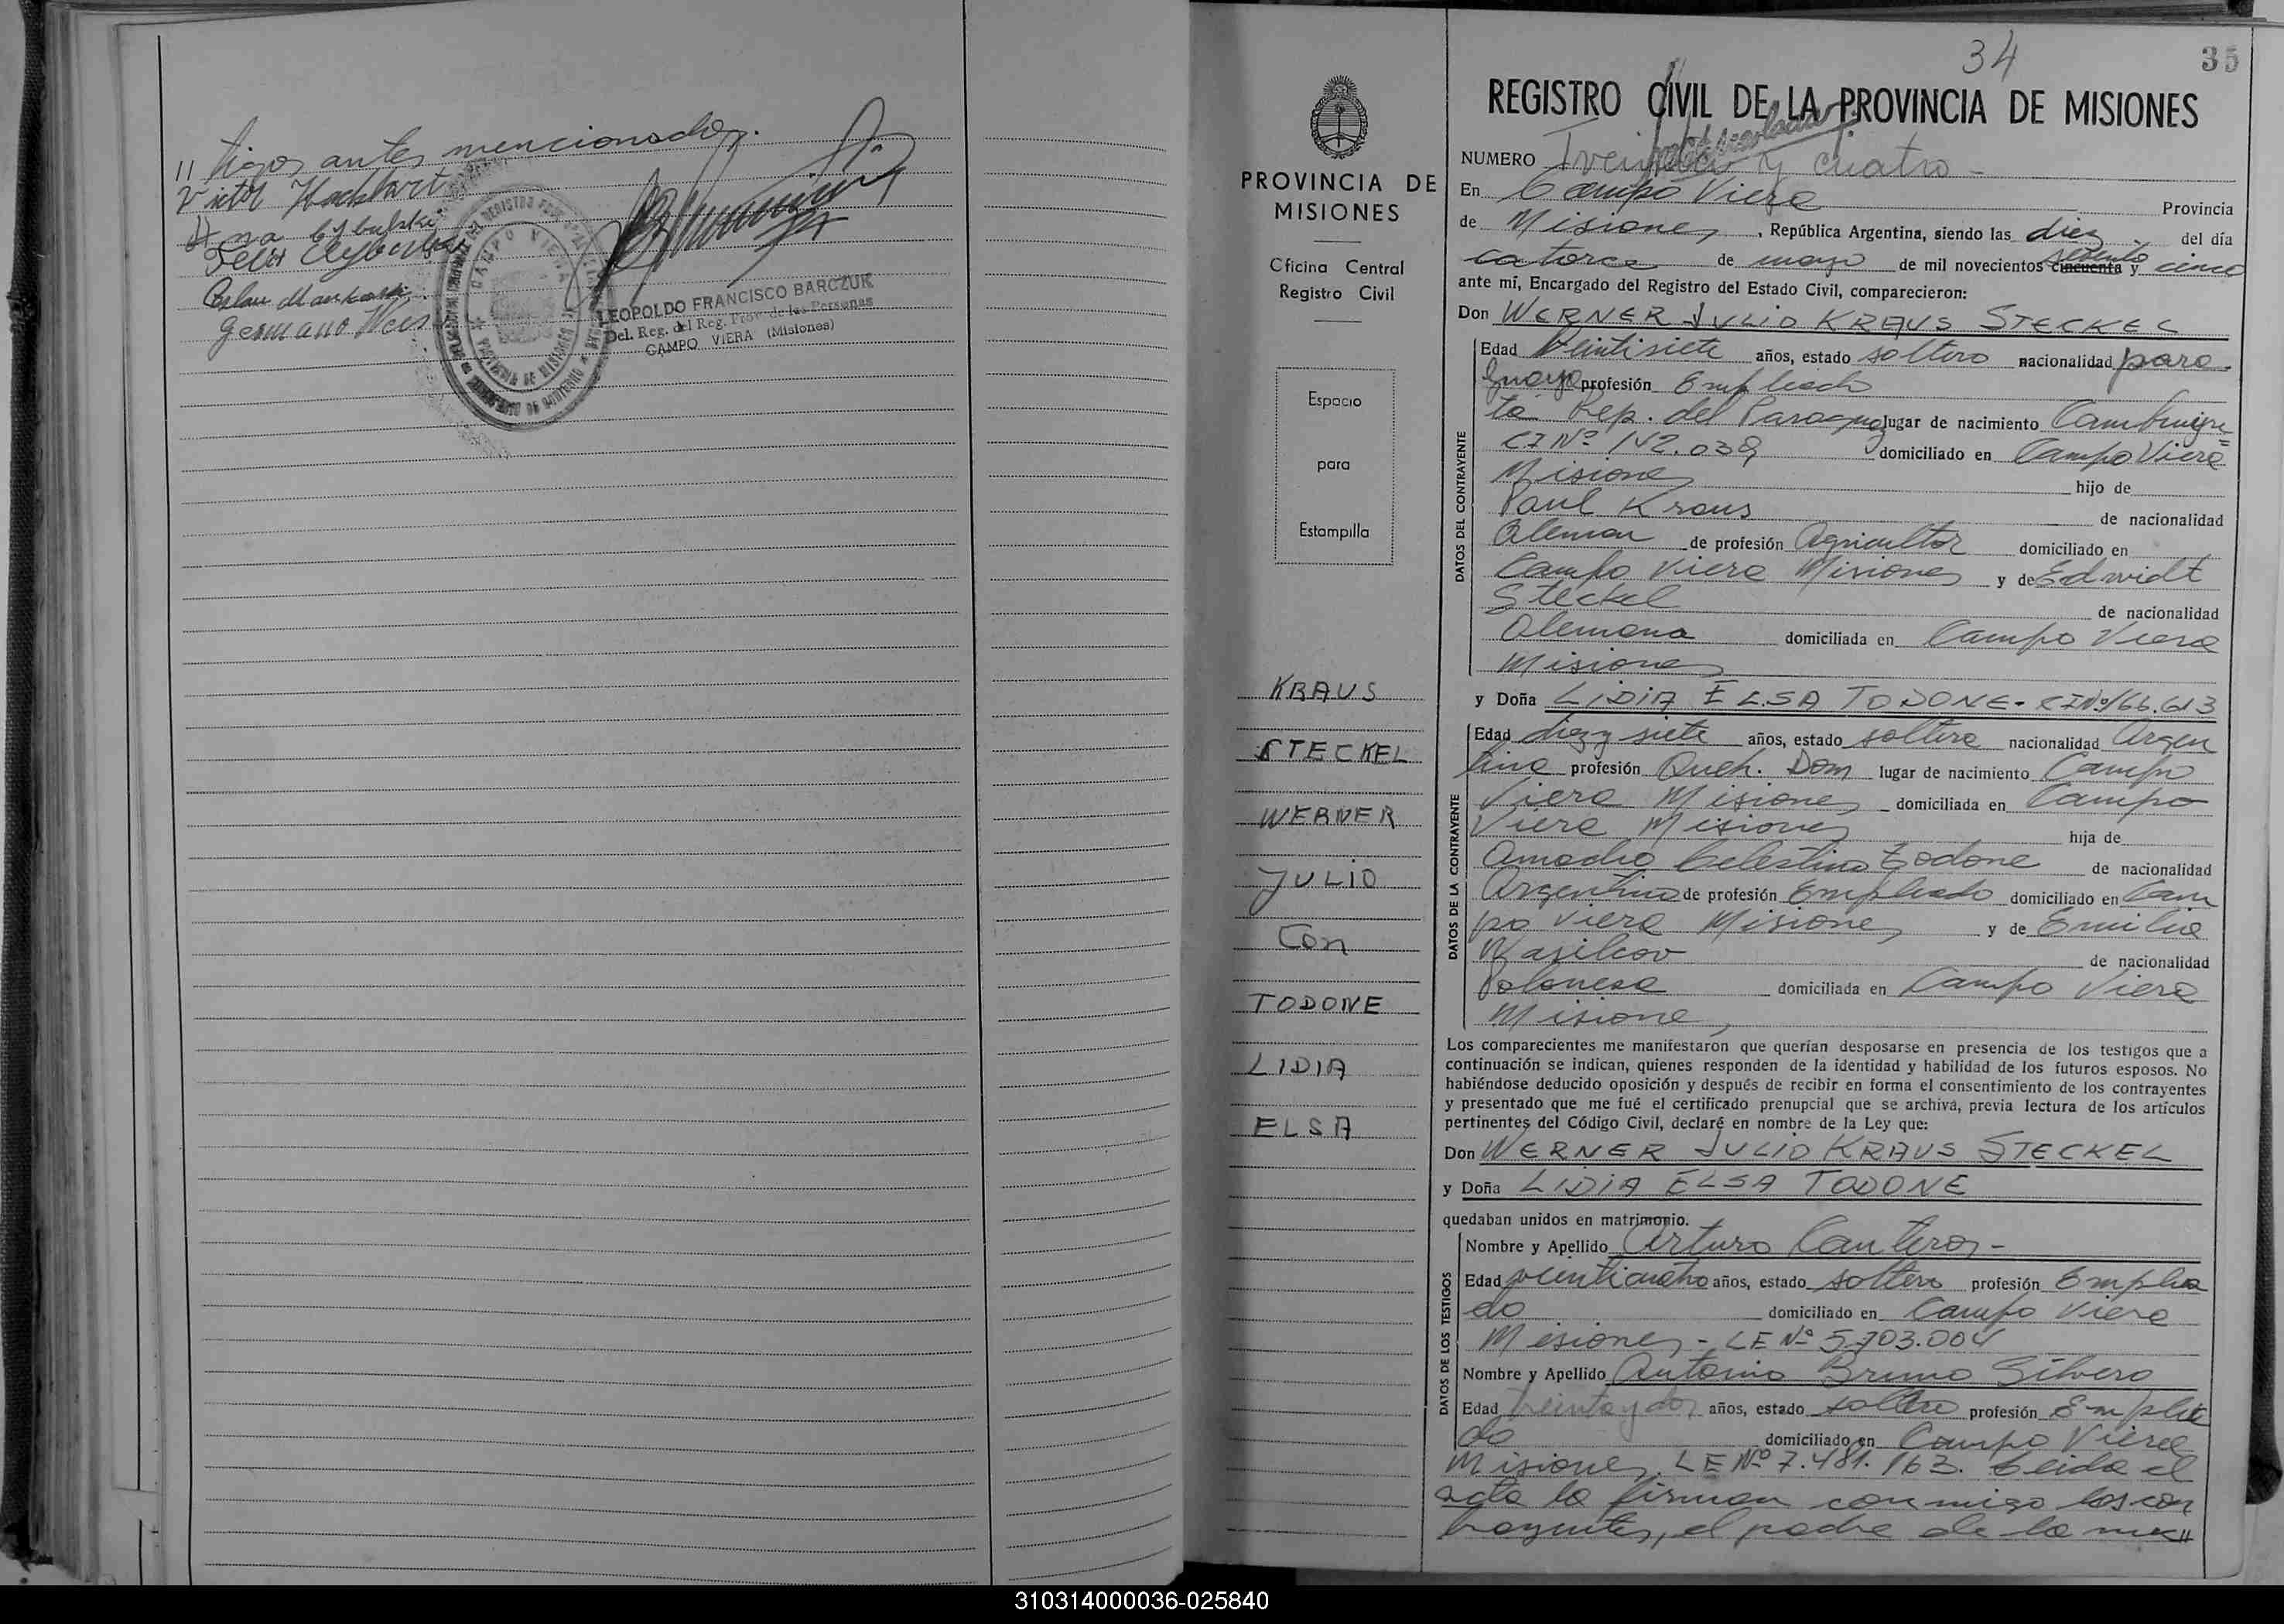 // tigos antes mencionados.
Victor Kachhart
Félix
Germano Weis
CAMPO VIERA
LEOPOLDO FRANCISCO BARCZUK
Del. Reg. del Reg. Prov. de las Personas
CAMPO VIERA (Misiones)
34
35
PROVINCIA DE
MISIONES
Oficina Central
Registro Civil
Espacio
para
Estampilla
KRAUS
STECKEL
WERNER
JULIO
Con
TODONE
LIDIA
ELSA
REGISTRO CIVIL DE LA PROVINCIA DE MISIONES
NUMERO Treinta y cuatro -
En Campo Viera Provincia
de Misiones, República Argentina, siendo las diez del día
catorce de mayo de mil novecientos cincuenta y setenta cinco
ante mí, Encargado del Registro del Estado Civil, comparecieron:
Don WERNER JULIO KRAUS STECKEL
Edad Veintisiete años, estado soltero nacionalidad para
guaya profesión Empleado
ta Rep. del Paraguay lugar de nacimiento Cambuigre=
CI Nº 142.038 domiciliado en Campo Viera
Misiones hijo de
Paul Kraus de nacionalidad
Aleman de profesión Agricultor domiciliado en
Campo Viera Misiones y de Edwidt
Steckel de nacionalidad
Alemana domiciliada en Campo Viera
Misiones
DATOS DEL CONTRAYENTE
y Doña LIDIA ELSA TODONE - CI Nº 166.613
Edad diez y siete años, estado soltera nacionalidad Argen
tina profesión Queh. Dom lugar de nacimiento Campo
Viera Misiones domiciliada en Campo
Viera Misiones hija de
Amadio Celestino Todone de nacionalidad
Argentina de profesión Empleado domiciliado en Cam
po Viera Misiones y de Emilia
Wasilcov de nacionalidad
Polonesa domiciliada en Campo Viera
Misiones
DATOS DE LA CONTRAYENTE
Los comparecientes me manifestaron que querían desposarse en presencia de los testigos que a
continuación se indican, quienes responden de la identidad y habilidad de los futuros esposos. No
habiéndose deducido oposición y después de recibir en forma el consentimiento de los contrayentes
y presentado que me fué el certificado prenupcial que se archiva, previa lectura de los artículos
pertinentes del Código Civil, declaré en nombre de la Ley que:
Don WERNER JULIO KRAUS STECKEL
y Doña LIDIA ELSA TODONE
quedaban unidos en matrimonio.
Nombre y Apellido Arturo Canteros -
Edad veinticuatro años, estado soltero profesión Emplea
do domiciliado en Campo Viera
Misiones - LE Nº 5.703.004
Nombre y Apellido Antonio Bruno Silvero
Edad treinta y dos años, estado soltero profesión Emplea
do domiciliado en Campo Viera
DATOS DE LOS TESTIGOS
Misiones LE Nº 7.481.163. Leida el
acta la firman conmigo los con
trayentes, el padre de la me//
310314000036-025840